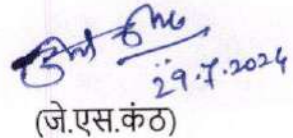 29.7.2024
(जे.एस.कंठ)